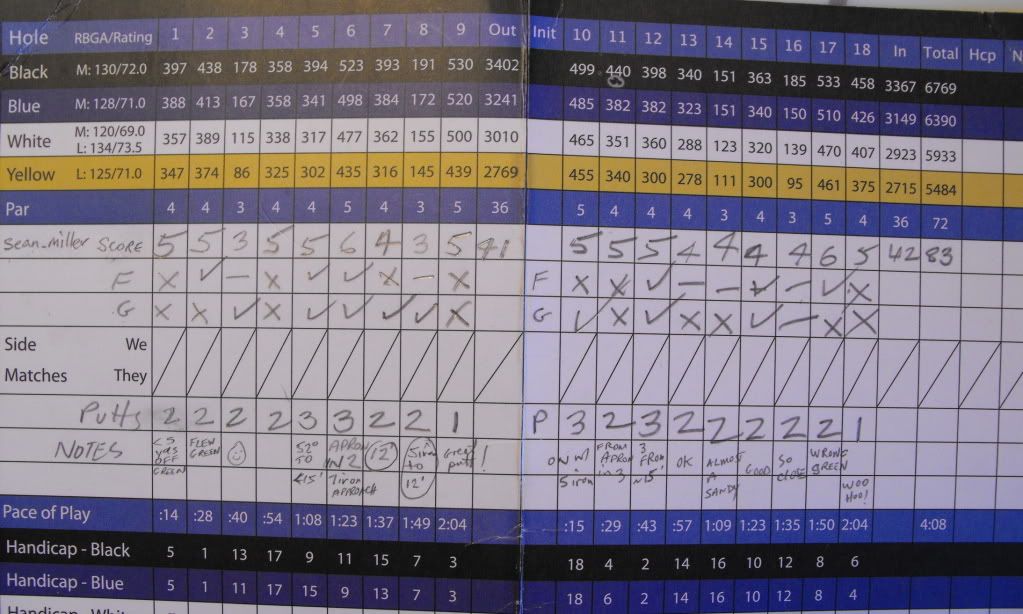 Hole RBGA/Rating 1 2 3 4 5 6 7 8 9 Out Init 10 11 12 13 14 15 16 17 18 In Total Hcp N
Black M: 130/72.0 397 438 178 358 394 523 393 191 530 3402 499 440 398 340 151 363 185 533 458 3367 6769
Blue M: 128/71.0 388 413 167 358 341 498 384 172 520 3241 485 382 382 323 151 340 150 510 426 3149 6390
White M: 120/69.0 L: 134/73.5 357 389 115 338 317 477 362 155 500 3010 465 351 360 288 123 320 139 470 407 2923 5933
Yellow L: 125/71.0 347 374 86 325 302 435 316 145 439 2769 455 340 300 278 111 300 95 461 375 2715 5484
Par 4 4 3 4 4 5 4 3 5 36 5 4 4 4 3 4 3 5 4 36 72
Sean_miller SCORE 5 5 3 5 5 6 4 3 5 41 5 5 5 4 4 4 4 6 5 42 83
F X ✓ – X ✓ ✓ X – X F X X ✓ – – ✓ – ✓ X
G X X ✓ X ✓ ✓ ✓ ✓ X G ✓ X ✓ X X ✓ – X X
Side We
Matches They
Putts 2 2 2 2 3 3 2 2 1 P 3 2 3 2 2 2 2 2 1
NOTES <5 yds OFF GREEN FLEW GREEN ☺ 52° TO <15' APRON IN 2 7iron APPROACH 12' 5iron to 12' Great putt! ON w/ 5 iron FROM APRON in 3 3 FROM ~15' OK ALMOST A SANDY GOOD So close WRONG GREEN WOO HOO!
Pace of Play :14 :28 :40 :54 1:08 1:23 1:37 1:49 2:04 :15 :29 :43 :57 1:09 1:23 1:35 1:50 2:04 4:08
Handicap - Black 5 1 13 17 9 11 15 7 3 18 4 2 14 16 10 12 8 6
Handicap - Blue 5 1 11 17 15 9 13 7 3 18 6 2 14 16 10 12 8 4